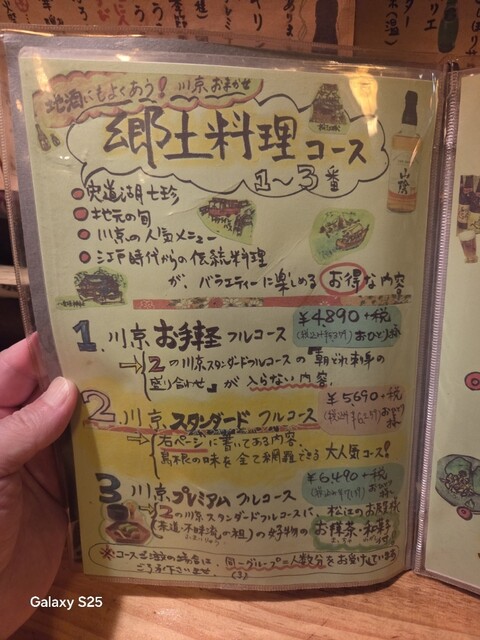 地酒にもよくあう！ 川京おまかせ
郷土料理コース
1～3番
宍道湖七珍
地元の旬
川京の人気メニュー
江戸時代からの伝統料理
が、バラエティーに楽しめるお得な内容
1. 川京お手軽フルコース
¥4,890+税
おひとり様
2の川京スタンダードフルコースの『朝どれ刺身の
盛り合せ』が入らない内容。
2 川京スタンダードフルコース
¥5690+税
右ページに書いてある内容。
島根の味を全て網羅できる大人気コース！
3 川京プレミアムフルコース
¥6,490+税
2の川京スタンダードフルコースに、松江のお殿様
(茶道・不昧流の祖)の好物のお抹茶・和菓子
付
※コースご注文の場合は、同一グループ=人数分をお受けしています
ご了承下さいませ。
(3)
山陰
Galaxy S25